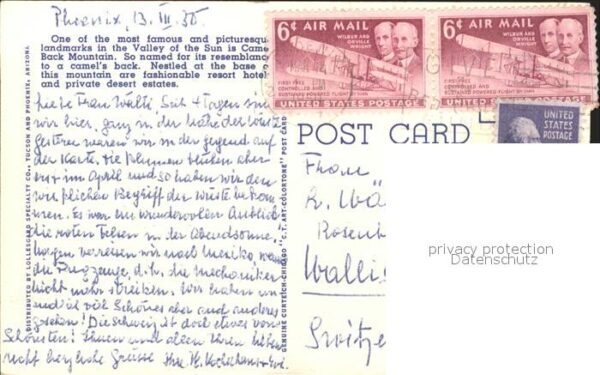 Phoenix, 13. III. 50
One of the most famous and picturesque
landmarks in the Valley of the Sun is Camel
Back Mountain. So named for its resemblance
to a camel's back. Nestled at the base of
this mountain are fashionable resort hotels
and private desert estates.
Liebe Frau Wälti, Seit 4 Tagen sind
wir hier, ganz in der Nähe der Wüste.
Gestern waren wir in der Gegend auf
der Karte. Die Blumen blühen aber
erst im April und so haben wir den
wirklichen Begriff der Wüste bekom-
men. Es war ein wundervoller Anblick
die roten Felsen in der Abendsonne.
Morgen verreisen wir nach Mexiko, wenn
die Flugzeuge, d.h. die Mechaniker
nicht mehr streiken. Wir haben un-
viel Schönes aber auch anderes
gesehen! Die Schweiz ist doch etwas vom
Schönsten! Ihnen und allen Ihren lieben
recht herzliche Grüsse Ihre
DISTRIBUTED BY LOLLESGARD SPECIALTY CO., TUCSON AND PHOENIX, ARIZONA
GENUINE CURTEICH-CHICAGO "C.T. ART-COLORTONE" POST CARD
6¢ AIR MAIL
WILBUR AND
ORVILLE
WRIGHT
FIRST FREE
CONTROLLED AND
SUSTAINED POWERED FLIGHT BY MAN
UNITED STATES POSTAGE
6¢ AIR MAIL
WILBUR AND
ORVILLE
WRIGHT
FIRST FREE
CONTROLLED AND
SUSTAINED POWERED FLIGHT BY MAN
UNITED STATES POSTAGE
UNITED
STATES
POSTAGE
POST CARD
Frau
R. Wä
Rosenb
Wallis
Switze
privacy protection
Datenschutz